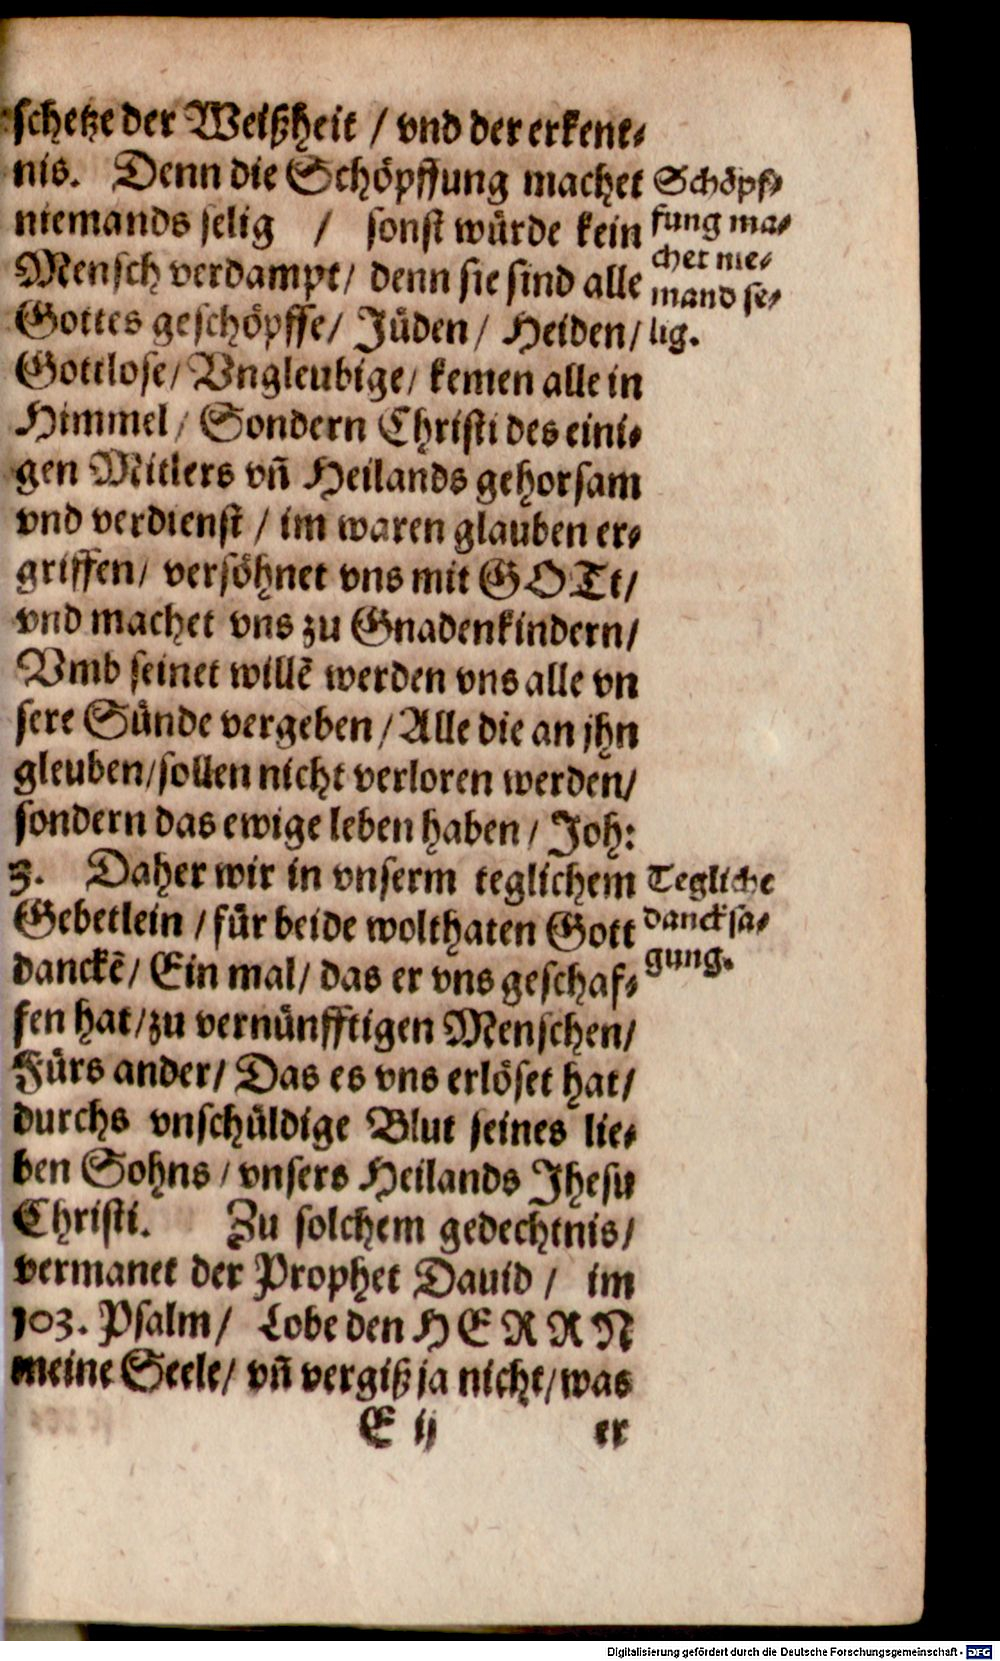 schetze der Weißheit / vnd der erkent⸗
nis. Denn die Schöpffung machet
niemands selig / sonst würde kein
Mensch verdampt / denn sie sind alle
Gottes geschöpffe / Jüden / Heiden /
Gottlose / Vngleubige / kemen alle in
Himmel / Sondern Christi des eini⸗
gen Mitlers vn̄ Heilands gehorsam
vnd verdienst / im waren glauben er⸗
griffen / versöhnet vns mit GOTt /
vnd machet vns zu Gnadenkindern /
Vmb seinet willē werden vns alle vn
sere Sünde vergeben / Alle die an jhn
gleuben / sollen nicht verloren werden /
sondern das ewige leben haben / Joh:
3. Daher wir in vnserm teglichem
Gebetlein / für beide wolthaten Gott
danckē / Ein mal / das er vns geschaf⸗
fen hat / zu vernünfftigen Menschen /
Fürs ander / Das es vns erlöset hat /
durchs vnschüldige Blut seines lie⸗
ben Sohns / vnsers Heilands Jhesu
Christi. Zu solchem gedechtnis /
vermanet der Prophet Dauid / im
103. Psalm / Lobe den HERRN
meine Seele / vn̄ vergiß ja nicht / was
E ij er
Schöpf⸗
fung ma⸗
chet nie⸗
mand se⸗
lig.
Tegliche
dancksa⸗
gung.
Digitalisierung gefördert durch die Deutsche Forschungsgemeinschaft - DFG